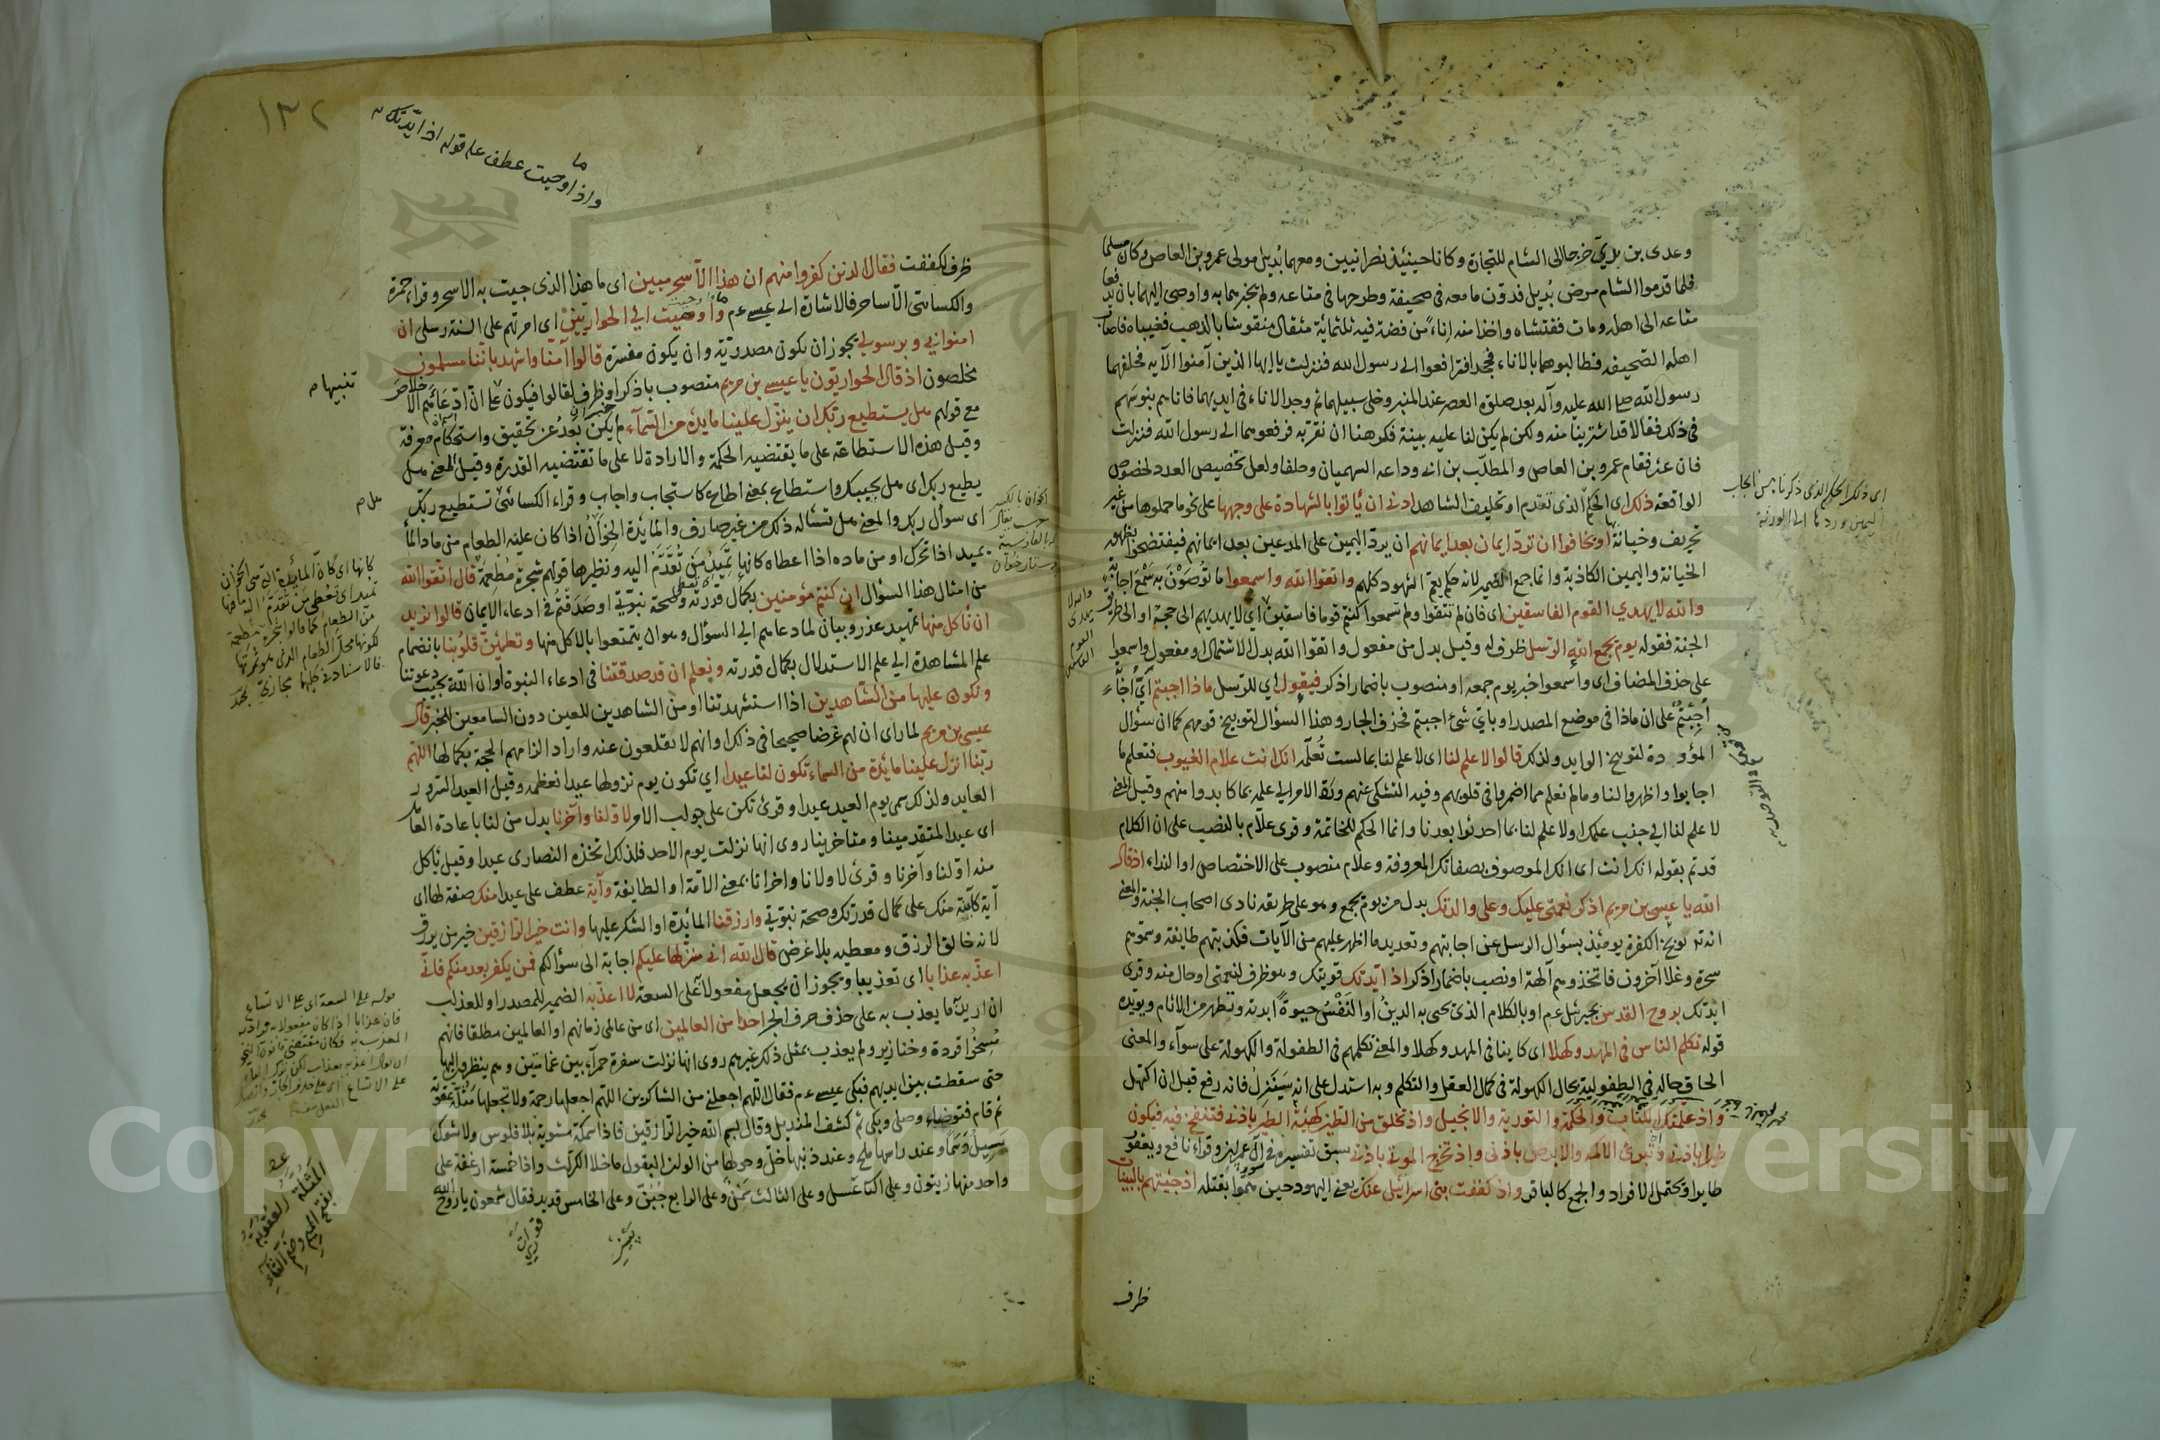 وعدى بن بديّ خرجا الى الشام للتجارة وكانا حينئذ نصرانيين ومعهما بُديل مولى عمرو بن العاص وكان مسلما
فلما قدموا الشام مرض بُديل فدوّن ما معه فى صحيفة وطرحها فى متاعه ولم يخبرهما به واوصى اليهما بان يدفعا
متاعه الى اهله ومات ففتشاه واخذا منه اناء من فضة فيه ثلثمائة مثقال منقوشا بالذهب فغيباه فاصاب
اهله الصحيفه فطالبوهما بالاناء فجحدا فترافعوا الى رسول الله فنزلت يا ايها الذين آمنوا الآيه فحلفهما
رسول الله صلى الله عليه وآله بعد صلوة العصر عند المنبر وخلى سبيلهما ثم وجد الاناء فى ايديهما فاتاهم بنوسهم
فى ذلك فقالا قد اشترينا منه ولكن لم يكن لنا عليه بينة فكرهنا ان نقرّ به فرفعوهما الى رسول الله فنزلت
فان عثر فقام عمرو بن العاص والمطلب بن ابى وداعه السهميان وحلفا ولعل تخصيص العدد لخصوص
الواقعة ذلك اى الحكم الذى تقدم او تحليف الشاهد ادنى ان يأتوا بالشهادة على وجهها على نحو ما حملوها من غير
تحريف وخيانة او يخافوا ان تردّ ايمان بعد ايمانهم ان يردّ اليمين على المدعين بعد ايمانهم فيفتضحوا بظهور
الخيانة واليمين الكاذبة وانما جمع الضمير لانه حكم يعم الشهود كلهم واتقوا الله واسمعوا ما تُوصَوْن به سَمْعَ اجابة
والله لا يهدي القوم الفاسقين اى فان لم تتقوا ولم تسمعوا كنتم قوما فاسقين اي لا يهديهم الى حجة او الى طريق
الجنة فقوله يوم يجمع الله الرسل ظرف له وقيل بدل من مفعول واتقوا الله بدل الاشتمال او مفعول واسمعوا
على حذف المضاف اى واسمعوا خبر يوم جمعه او منصوب باضمار اذكر فيقول اي للرسل ماذا اجبتم أيّ اجابة
أُجِبْتُم على ان ماذا فى موضع المصدر او باىّ شئ اجبتم فحذف الجار وهذا السؤال لتوبيخ قومهم كما ان سؤال
المؤودة لتوبيخ الوايد ولذلك قالوا لا علم لنا اى لا علم لنا بما لست تُعلّمه انك انت علام الغيوب فتعلم ما
اجابوا واظهروا لنا وما لم نعلم مما اضمروا فى قلوبهم وفيه التشكى عنهم وردّ الامر الى علمه بما كابدوا منهم وقيل المعنى
لا علم لنا الى جنب علمك او لا علم لنا بما احدثوا بعدنا وانما الحكم للخاتمة وقرى علام بالنصب على ان الكلام
قد تم بقوله انك انت اى انك الموصوف بصفاتك المعروفة وعلام منصوب على الاختصاص او النداء اذ قال
الله يا عيسى بن مريم اذكر نعمتى عليك وعلى والدتك بدل من يوم يجمع وهو على طريقة نادى اصحاب الجنة والمعنى
انه توبيخ الكفرة يومئذ بسؤال الرسل عن اجابتهم وتعديد ما اظهر عليهم من الآيات فكذبتهم طايفة وسموهم
سحرة وغلا آخرون فاتخذوهم آلهة او نصب باضمار اذكر اذ ايّدتك قويتك وهو ظرف لنعمتى او حال منه وقرى
آيدتك بروح القدس بجبرئيل ع م او بالكلام الذى يحيى به الدينُ او النَفْسُ حيوةً ابديه وتطهر من الاثام ويؤيده
قوله تكلم الناس فى المهد وكهلا اى كاينا فى المهد وكهلا والمعنى تكلمهم فى الطفولة والكهولة على سوآء والمعنى
الحاق حاله فى الطفولية بحال الكهولة فى كمال العقل والتكلم وبه استدل على انه سينزل فانه رفع قبل ان اكتهل
واذ علمتك الكتاب والحكمة والتورية والانجيل واذ تخلق من الطين كهيئة الطير باذنى فتنفخ فيه فيكون
طيرا باذنى وتبرئ الاكمه والابرص باذنى واذ تخرج الموتى باذنى سبق تفسيره فى آل عمران وقراء نافع ويعقوب
طايرا ويحتمل الافراد والجمع كالباقر واذ كففت بنى اسرائيل عنك يعنى اليهود حين همّوا بقتله اذ جئتهم بالبينات
ظرف
اى ذلك الحكم الذى ذكرنا من ايجاب
اليمين وردها الى الورثة
والله لا
يهدى
القوم
الفاسقين
١٣٢
واذ اوحيت عطف على قوله اذ ايدتك
ظرف لكففت فقال الذين كفروا منهم ان هذا الا سحر مبين اى ما هذا الذى جيت به الا سحر وقراء حمزة
والكسائى الا ساحر فالاشارة الى عيسى ع م واذ اوحيت الى الحواريين اى امرتهم على السنة رسلى ان
امنوا بى وبرسولى يجوز ان يكون مصدريّة وان يكون مفسرة قالوا آمنا واشهد باننا مسلمون
مخلصون اذ قال الحواريون يا عيسى بن مريم منصوب باذكر او ظرف لقالوا فيكون تنبيها على ان ادّعائهم الاخلاص
مع قولهم هل يستطيع ربك ان ينزّل علينا مايدة من السمآء لم يكن بَعْدُ عن تحقيق واستحكام معرفة
وقيل هذه الاستطاعة على ما يقتضيه الحكمة والارادة لا على ما تقتضيه القدرة وقيل المعنى هل
يطيع ربك اى هل يجيبك واستطاع بمعنى اطاع كاستجاب واجاب وقراء الكسائى تستطيع ربك
اى سوال ربك والمعنى هل تسئاله ذلك من غير صارف والمايدة الخوان اذا كان عليه الطعام من ماد الماء
يميد اذا تحرك او من ماده اذا اعطاه كانها تميد من تُقَدَّمُ اليه ونظيرها قولهم شجرة مُطعِمة قال اتقوا الله
من امثال هذا السؤال ان كنتم مؤمنين بكمال قدرته وصحة نبوّتى او صَدَقتم فى ادعاء الايمان قالوا نريد
ان نأكل منها تمهيد عذر وبيان لما دعاهم الى السؤال وهو ان يتمتعوا بالاكل منها وتطمئن قلوبنا بانضمام
علم المشاهدة الى علم الاستدلال بكمال قدرته ونعلم ان قد صدقتنا فى ادعاء النبوة او ان الله يجيب دعوتنا
ونكون عليها من الشاهدين اذا استشهدتنا او من الشاهدين للعين دون السامعين للخبر قال
عيسى بن مريم لما راى ان لهم غرضا صحيحا فى ذلك او انهم لا يقلعون عنه واراد الزامهم الحجة بكمالها اللهم
ربنا انزل علينا مائدة من السماء تكون لنا عيدا اي تكون يوم نزولها عيدا نعظمه وقيل العيد السرور
العايد ولذلك سمى يوم العيد عيدا وقرئ تكن على جواب الامر لاولنا وآخرنا بدل من لنا باعادة العامل
اى عيدا لمتقدمينا ومتاخرينا روى انها نزلت يوم الاحد فلذلك اتخذه النصارى عيدا وقيل ياكل
منه اوّلنا وآخرنا وقرئ لاولانا واخرانا بمعنى الامّة او الطايفة وآية عطف على عيدا منك صفة لها اى
آية كاينة منك على كمال قدرتك وصحة نبوّتى وارزقنا المائدة او الشكر عليها وانت خير الرازقين خير من يرزق
لانه خالق الرزق ومعطيه بلا غرض قال الله انى منزلها عليكم اجابة الى سؤالكم فمن يكفر بعد منكم فانى
اعذّبه عذابا اى تعذيبا ويجوز ان يجعل مفعولا على السعة لا اعذّبه الضمير للمصدر او للعذاب
ان اريد ما يعذب به على حذف حرف الجر احدا من العالمين اى من عالمى زمانهم او العالمين مطلقا فانهم
مُسِخُوا قردة وخنازير ولم يعذب بمثل ذلك غيرهم روى انها نزلت سفرة حمرآء بين غمامتين وهم ينظرون اليها
حتى سقطت بين ايديهم فبكى عيسى ع م فقال اللهم اجعلنى من الشاكرين اللهم اجعلها رحمة ولا تجعلها مثلة وعقوبة
ثم قام فتوضاء وصلى وبكى ثم كشف المنديل وقال بسم الله خير الرازقين فاذا سمكة مشوية بلا فلوس ولا شوك
تسيل دَسَما وعند راسها ملح وعند ذنبها خل وحولها من الوان البقول ما خلا الكراث واذا خمسة ارغفة على
واحد منها زيتون وعلى الثانى عسل وعلى الثالث سَمْن وعلى الرابع جُبْن وعلى الخامس قديد فقال شمعون يا روح الله
تنبيها م
هل م
كانها اى كانّ المايدة التى هى الخوان
تميد اى تعطى من تقدم اليه ما فيها
من الطعام كما قالوا شجرة مطعمة
لكونها محل الطعام الذى هو ثمرتها
فالاسناد فى كليهما مجازي
قوله على السعة اى على الاتساع
Copyright © King Saud University